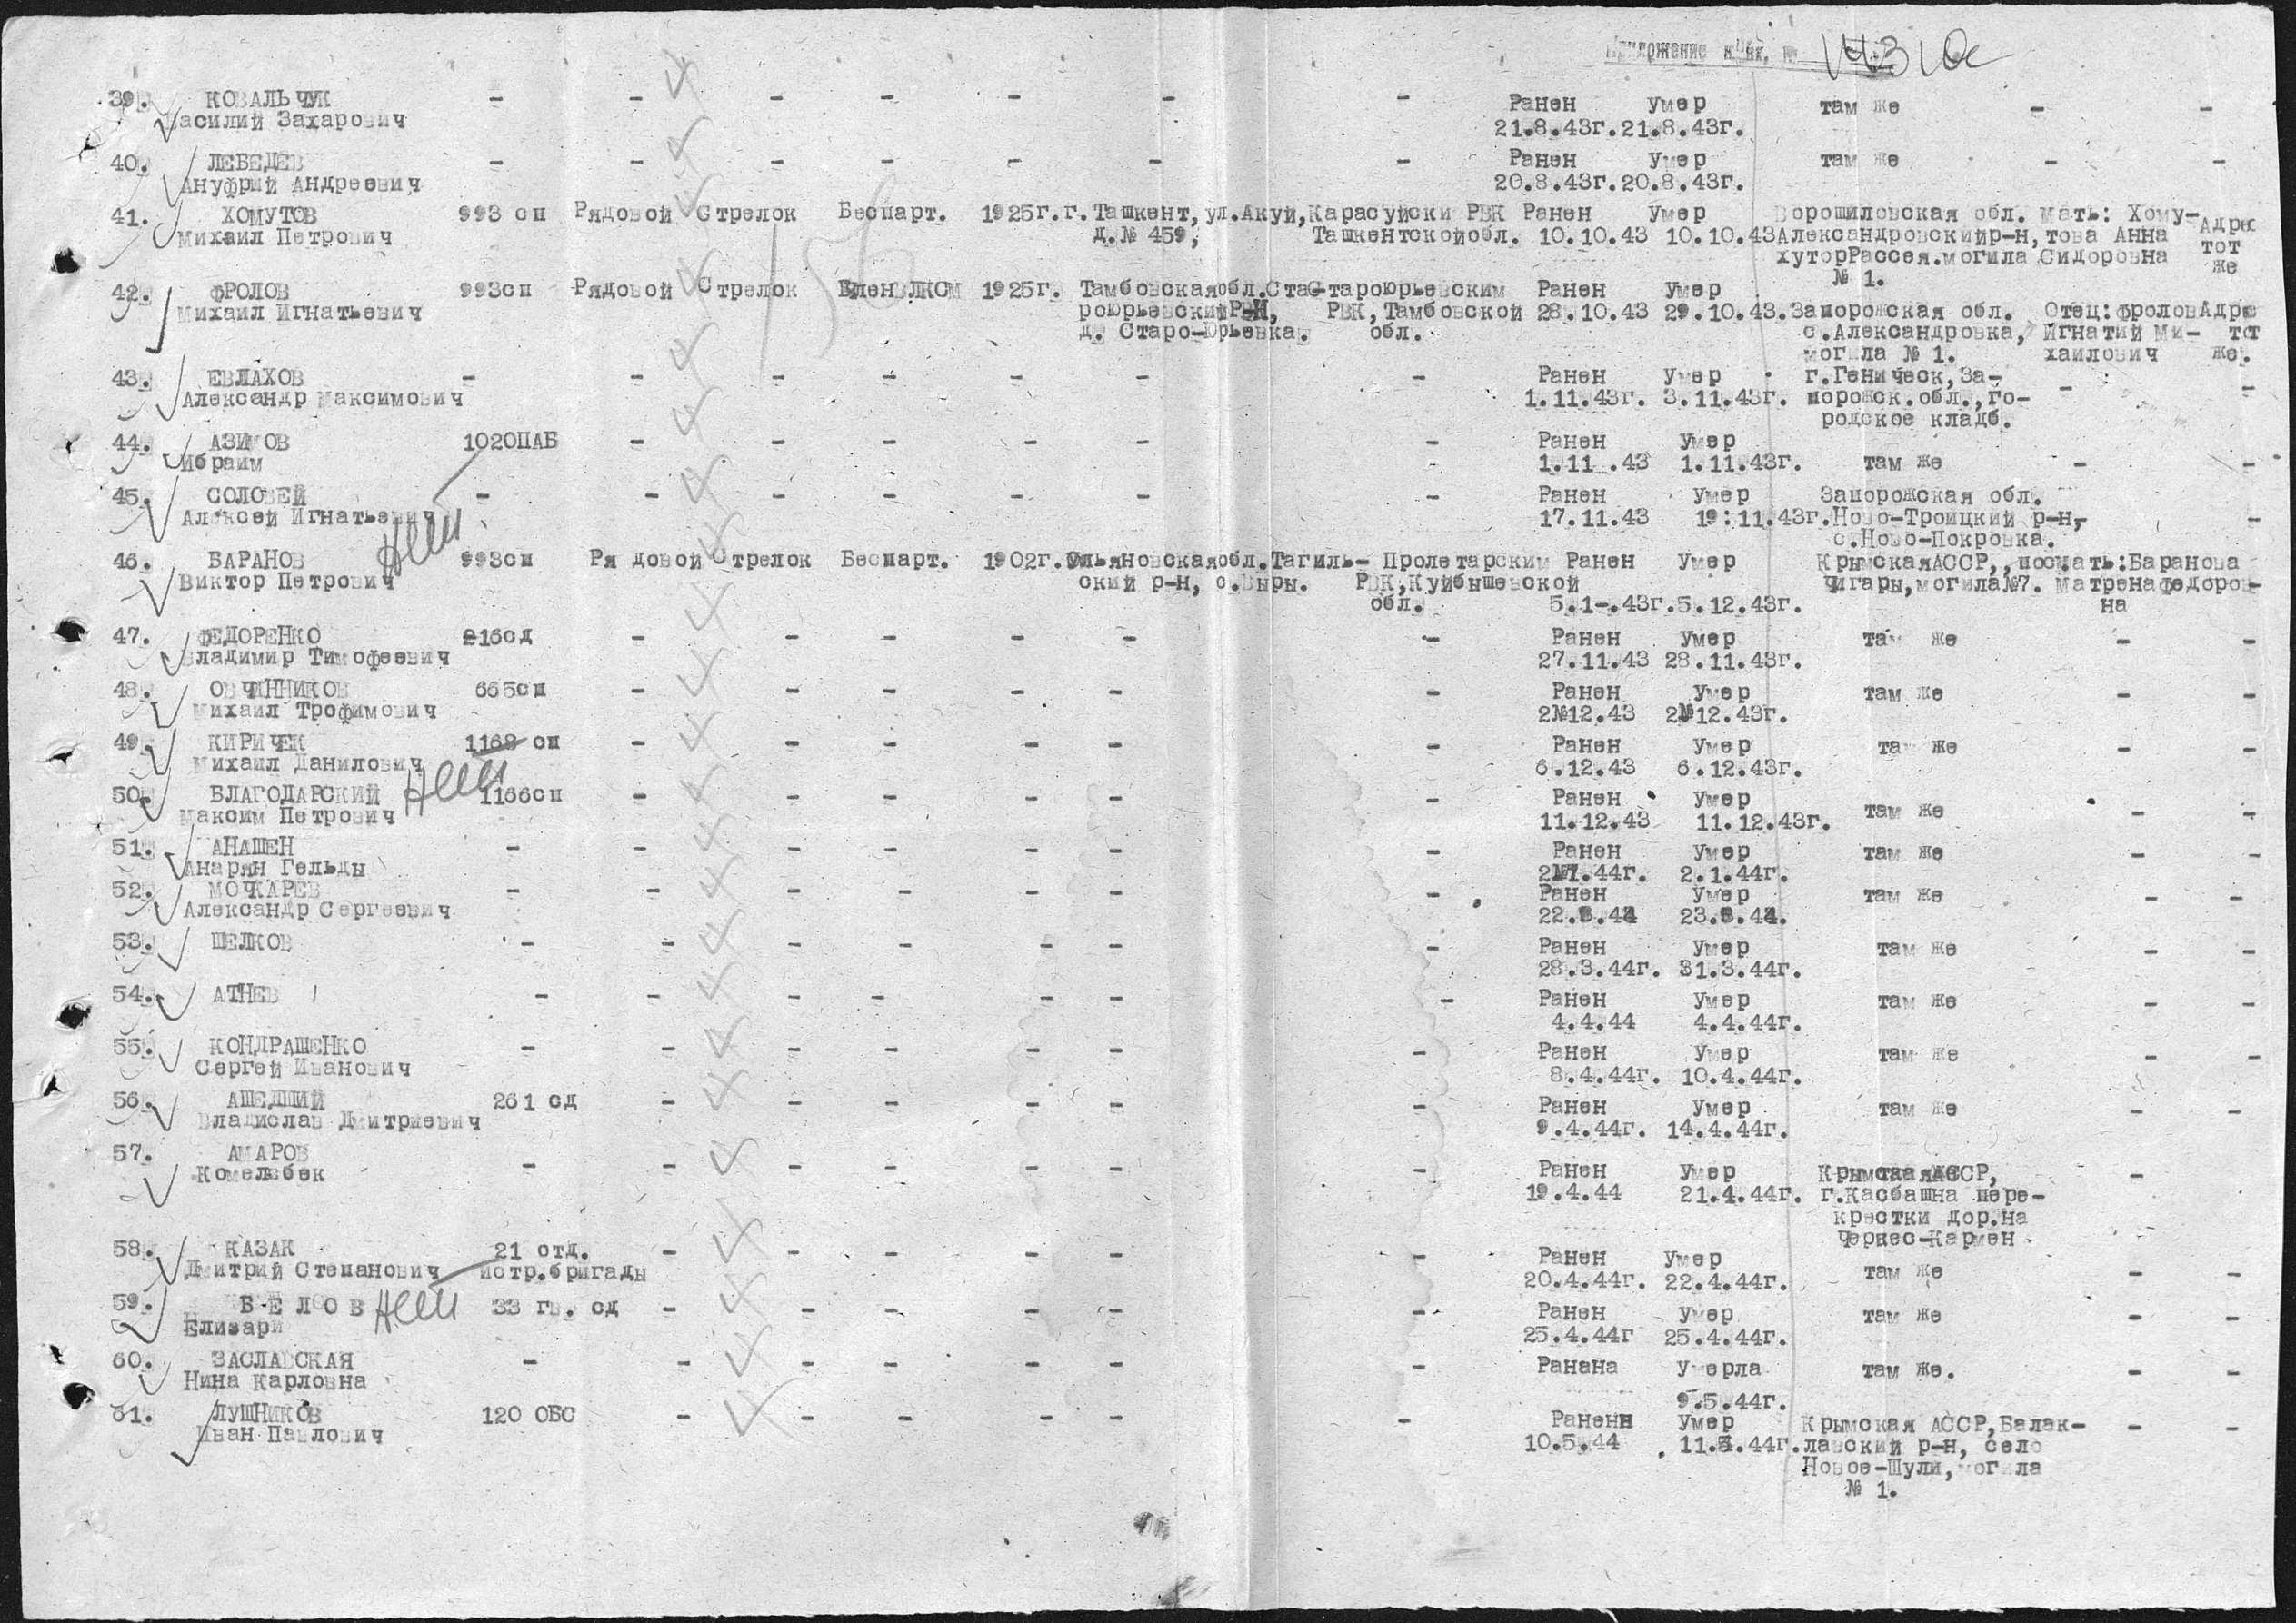 Приложение к вх. №
39. КОВАЛЬЧУК - - - - - - - Ранен умер там же - -
Василий Захарович 21.8.43г. 21.8.43г.
40. ЛЕБЕДЕВ - - - - - - - Ранен умер там же - -
Ануфрий Андреевич 20.8.43г. 20.8.43г.
41. ХОМУТОВ 993 сп Рядовой Стрелок Беспарт. 1925г. г.Ташкент, ул.Акуй, Карасуйски РВК Ранен умер Ворошиловская обл. Мать: Хому- Адрес
Михаил Петрович д.№ 459, Ташкентской обл. 10.10.43 10.10.43 Александровский р-н, това Анна тот
хутор Рассея.могила Сидоровна же
№ 1.
42. ФРОЛОВ 993сп Рядовой Стрелок Член ВЛКСМ 1925г. Тамбовская обл.Ста- Староюрьевским Ранен умер
Михаил Игнатьевич роюрьевский Р-Н, РВК, Тамбовской 28.10.43 29.10.43. Запорожская обл. Отец: Фролов Адрес
д. Старо-Юрьевка. обл. с.Александровка, Игнатий Ми- тот
могила № 1. хайлович же.
43. ЕВЛАХОВ - - - - - - - Ранен умер г.Геническ, За-
Александр Максимович 1.11.43г. 3.11.43г. порожск.обл., го- - -
родское кладб.
44. АЗИМОВ 1020ПАБ - - - - - - Ранен умер
Ибраим 1.11.43 1.11.43г. там же - -
45. СОЛОВЕЙ - - - - - - - Ранен умер Запорожская обл.
Алексей Игнатьевич 17.11.43 19.11.43г. Ново-Троицкий р-н, - -
с.Ново-Покровка.
46. БАРАНОВ 993сп Рядовой Стрелок Беспарт. 1902г. Ульяновская обл.Тагиль- Пролетарским Ранен умер Крымская АССР, пос. Мать: Баранова
Виктор Петрович ский р-н, с.Выры. РВК, Куйбышевской Чигары, могила №7. Матрена Федоров-
обл. 5.1-.43г. 5.12.43г. на
47. ФЕДОРЕНКО 216сд - - - - - - Ранен умер там же - -
Владимир Тимофеевич 27.11.43 28.11.43г.
48. ОВЧИННИКОВ 665сп - - - - - - Ранен умер там же - -
Михаил Трофимович 2№12.43 2№12.43г.
49. КИРИЧЕК 1168 сп - - - - - - Ранен умер там же - -
Михаил Данилович 6.12.43 6.12.43г.
50. БЛАГОДАРСКИЙ 1166сп - - - - - - Ранен умер
Максим Петрович 11.12.43 11.12.43г. там же - -
51. АНАШЕН - - - - - - - Ранен умер там же - -
Анарян Гельды 2.1.44г. 2.1.44г.
52. МОЧКАРЕВ - - - - - - - Ранен умер там же - -
Александр Сергеевич
53. ШЕЛКОВ - - - - - - - Ранен умер там же - -
28.3.44г. 31.3.44г.
54. АТНЕВ - - - - - - - Ранен умер там же - -
4.4.44 4.4.44г.
55. КОНДРАШЕНКО - - - - - - - Ранен умер там же - -
Сергей Иванович 8.4.44г. 10.4.44г.
56. АШЕДШИЙ 261 сд - - - - - - Ранен умер там же - -
Владислав Дмитриевич 9.4.44г. 14.4.44г.
57. АМАРОВ - - - - - - - Ранен умер Крымская АССР, -
Комельбек 19.4.44 21.4.44г. г.Касбашна пере-
крестки дор.на
Черкес-Кармен
58. КАЗАК 21 отд. - - - - - - Ранен умер
Дмитрий Степанович истр.бригады 20.4.44г. 22.4.44г. там же - -
59. БЕЛОВ 33 гв. сд - - - - - - Ранен умер там же - -
Елизари 25.4.44г 25.4.44г.
60. ЗАСЛАВСКАЯ - - - - - - - Ранена умерла там же. - -
Нина Карловна 9.5.44г.
61. ЛУШНИКОВ 120 ОБС - - - - - - Раненн умер Крымская АССР, Балак- - -
Иван Павлович 10.5.44 11.5.44г. лавский р-н, село
Новое-Шули, могила
№ 1.